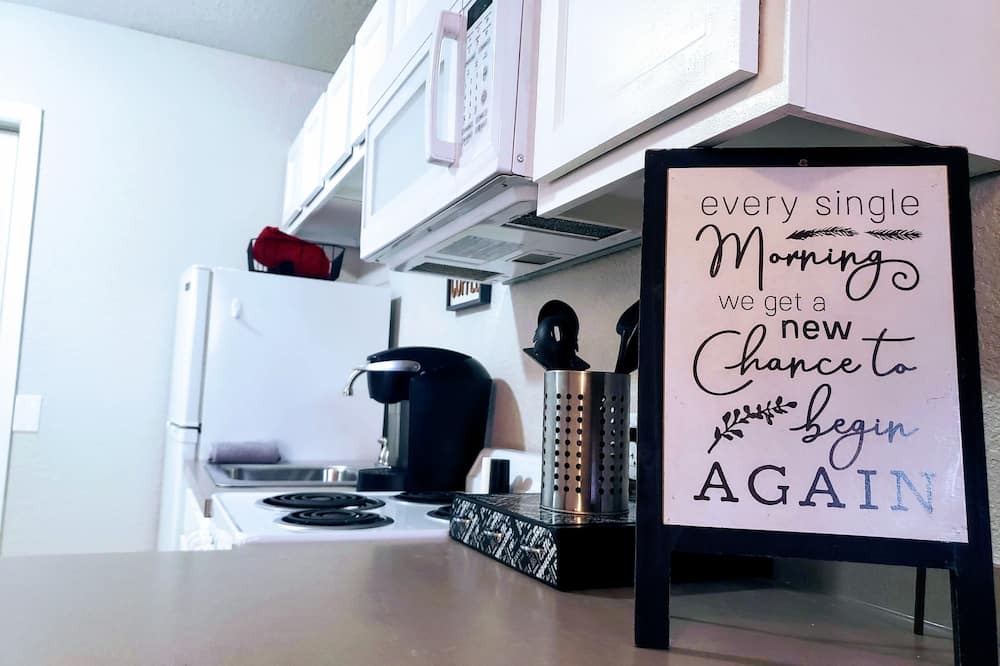 every single
Morning
we get a
new
Chance to
begin
AGAIN